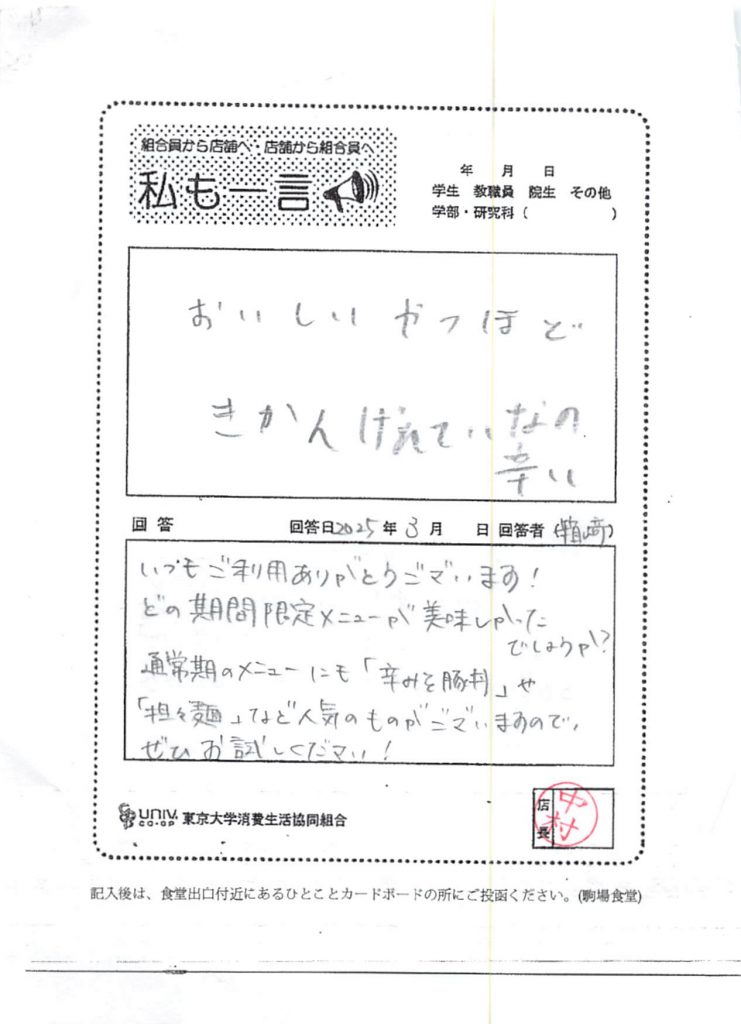 組合員から店舗へ・店舗から組合員へ
私も一言
年 月 日
学生 教職員 院生 その他
学部・研究科 ( )
おいしいやつほど
きかんげんていなの
辛い
回答 回答日2025年3月 日 回答者(箱崎)
いつもご利用ありがとうございます!
どの期間限定メニューが美味しかった
でしょうか?
通常期のメニューにも「辛みそ豚丼」や
「担々麺」など人気のものがございますので、
ぜひお試しください!
UNIV. CO-OP 東京大学消費生活協同組合
店長 中村
記入後は、食堂出口付近にあるひとことカードボードの所にご投函ください。(駒場食堂)